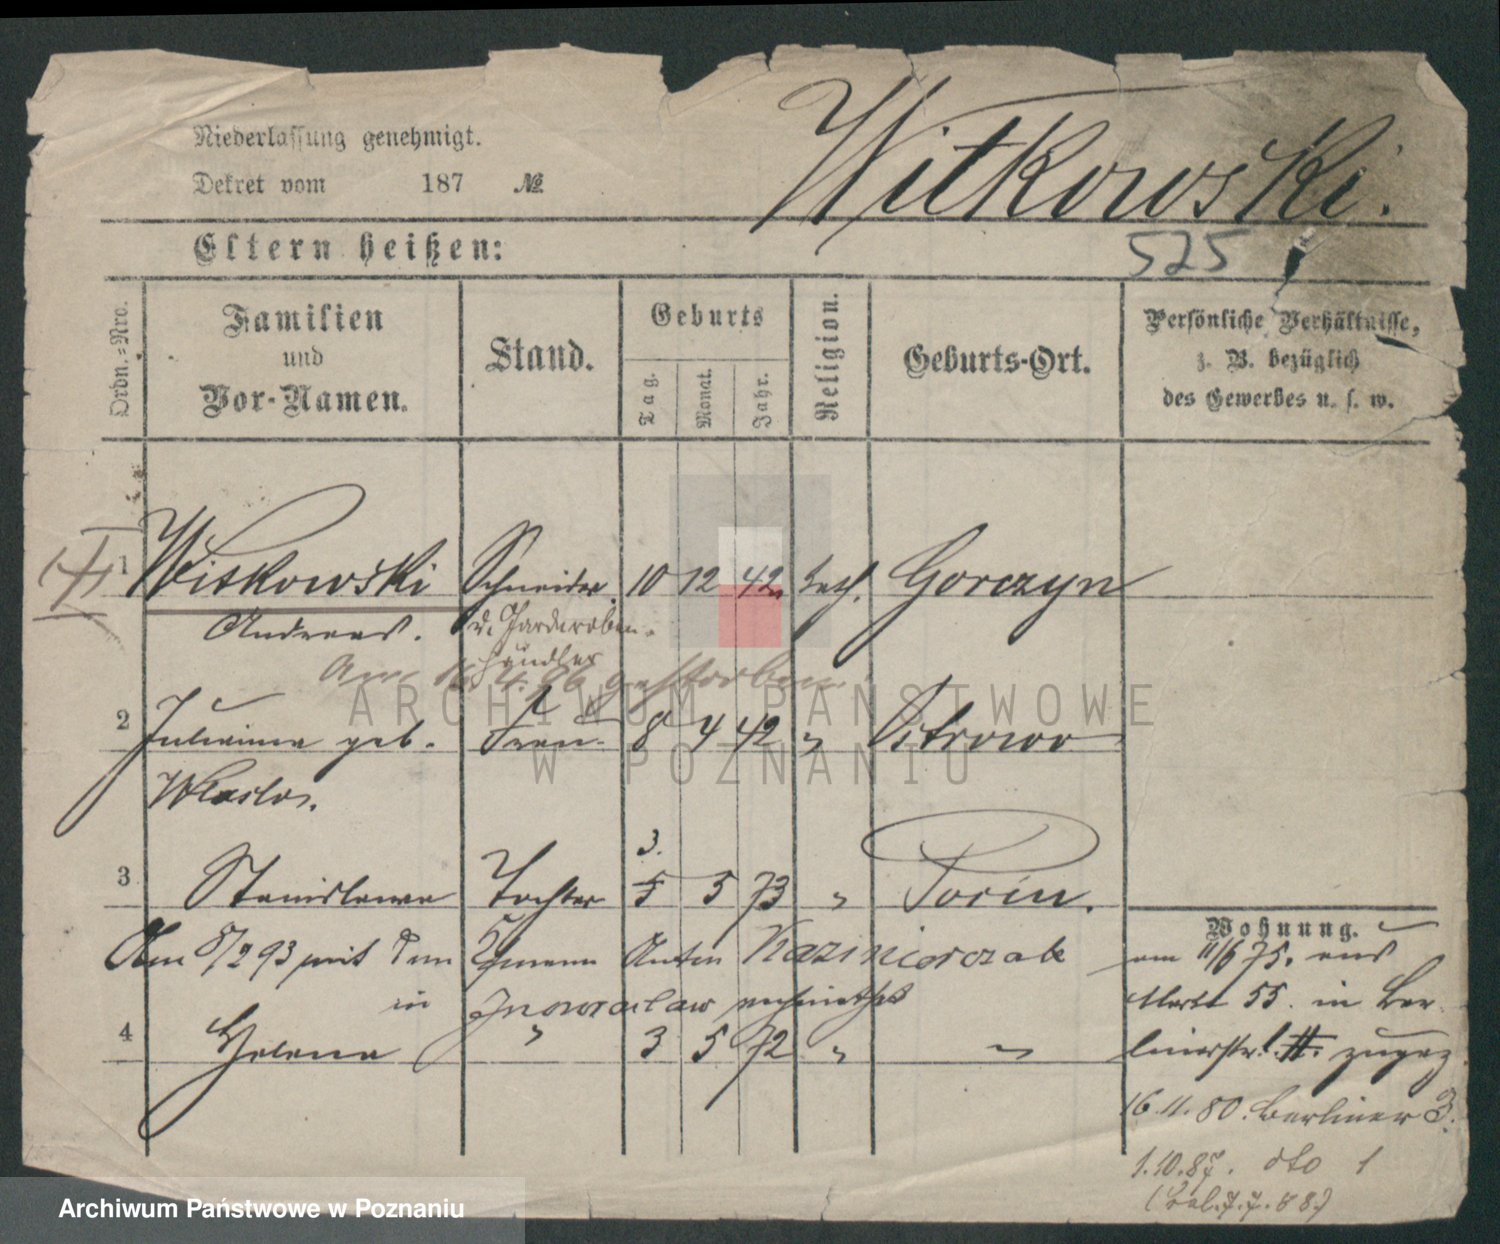 Niederlassung genehmigt.
Dekret vom 187 №
Witkowski.
Eltern heißen:
525
Ordn.-Nro.
Familien
und
Vor-Namen.
Stand.
Geburts
Tag.
Monat.
Jahr.
Religion.
Geburts-Ort.
Persönliche Verhältnisse,
z. B. bezüglich
des Gewerbes u. s. w.
1 Witkowski Schneider. 10 12 42 kath. Gorczyn
Andreas. u. Garderoben-
händler
Am 16.4.96 gestorben.
2 Julianna geb. Frau. 8 4 42 "
3.
3 Stanislawa Tochter 5 5 73 " Posen.
Am 8/2 93 mit dem Anton Kazmierczak
in Inowraclaw verheirathet
4 Helena " 3 5 72 " "
Wohnung.
am 11/6 75. aus
Markt 55. in Ber-
linerstr. zugez.
16.11.80. Berliner 3.
1.10.87. dto 1
ARCHIWUM PAŃSTWOWE
W POZNANIU
Archiwum Państwowe w Poznaniu